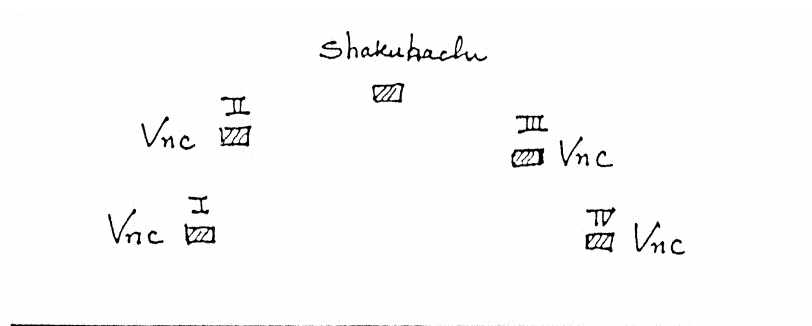 Shakuhachi
II
Vnc
III
Vnc
I
Vnc
IV
Vnc